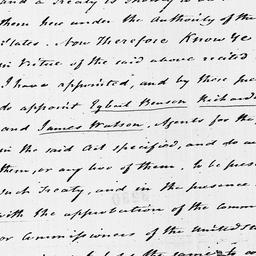 and a Treaty is
them how under the Authority of the
States. Now Therefore Know Ye
in Virtue of the said above recited
I have appointed, and by these
do appoint Egbert Benson Richard
and James Watson, Agents for the
in the said Act specified, and do
them, or any two of them, to be
such Treaty, and in the presence
with the approbation of the Comm
or Commissioners of the United
the same